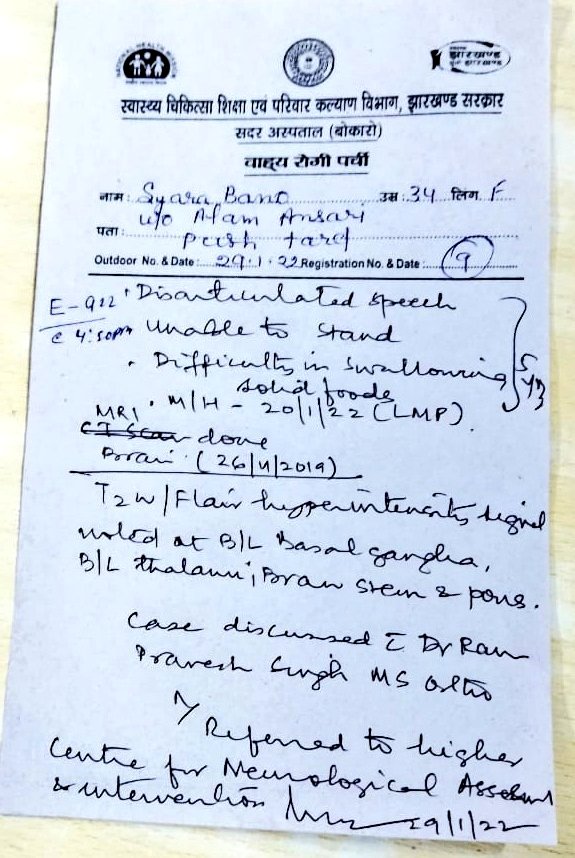 NATIONAL HEALTH MISSION
झारखण्ड
स्वास्थ्य चिकित्सा शिक्षा एवं परिवार कल्याण विभाग, झारखण्ड सरकार
सदर अस्पताल (बोकारो)
वाह्य रोगी पर्ची
नाम: Syara Bano उम्र: 34 लिंग F
w/o Alam Ansari
पता:
Outdoor No. & Date: 29.1.22 Registration No. & Date: 9
E-922 • Disarticulated speech
@ 4:50pm unable to stand
• Difficulty in Swallowing
solid foods
• M/H - 20/1/22 (LMP).
MRI
CT Scan done
Brain (26/11/2019)
T2W/Flair hyperintensity signal
noted at B/L Basal ganglia,
B/L thalami, Brain stem & pons.
Case discussed c Dr Ram
Pravesh Singh MS Ortho
Referred to higher
Centre for Neurological Assessment
& intervention 29/1/22